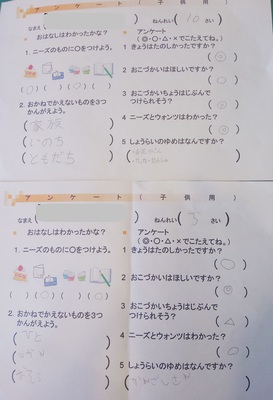 アンケート (子供用)
なまえ ねんれい(10さい)
おはなしはわかったかな?
1. ニーズのものに○をつけよう。
( )(○)( )(○)
2. おかねでかえないものを3つ
かんがえよう。
(家族)
(いのち)
(ともだち)
アンケート
(◎・○・△・×でこたえてね。)
1 きょうはたのしかったですか?
(◎)
2 おこづかいはほしいですか?
3 おこづかいちょうはじぶんで
つけられそう?
4 ニーズとウォンツはわかった?
5 しょうらいのゆめはなんですか?
アンケート (子供用)
なまえ( ) ねんれい(5さい)
おはなしはわかったかな?
1. ニーズのものに○をつけよう。
( )(○)( )(○)
2. おかねでかえないものを3つ
かんがえよう。
(ひと)
アンケート
(◎・○・△・×でこたえてね。)
1 きょうはたのしかったですか?
(○)
2 おこづかいはほしいですか?
(◎)
3 おこづかいちょうはじぶんで
つけられそう?
(△)
4 ニーズとウォンツはわかった?
(○)
5 しょうらいのゆめはなんですか?